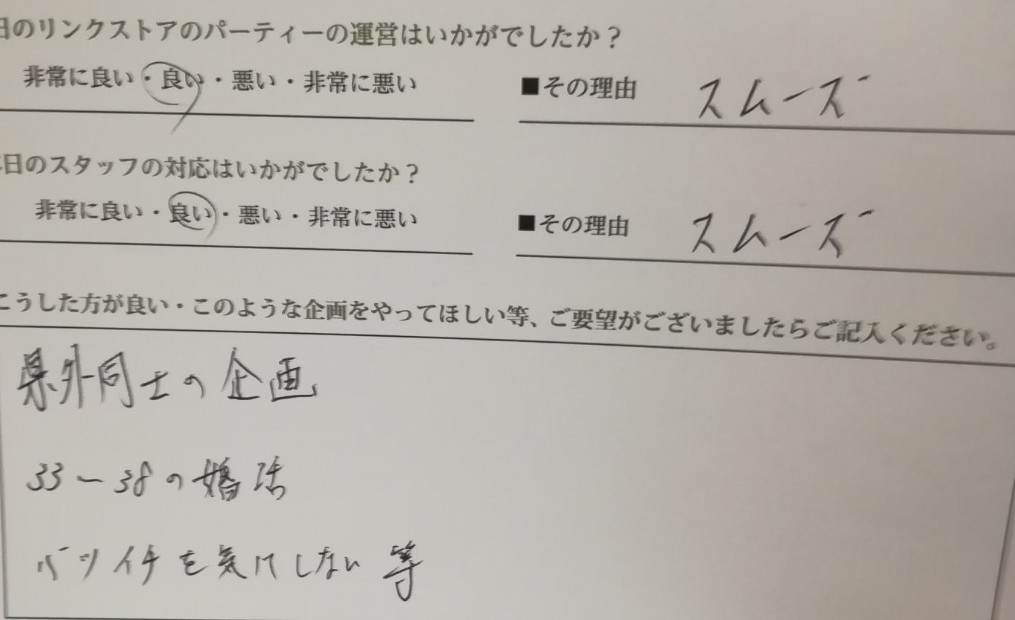 日のリンクストアのパーティーの運営はいかがでしたか？
非常に良い・良い・悪い・非常に悪い ■その理由 スムーズ
日のスタッフの対応はいかがでしたか？
非常に良い・良い・悪い・非常に悪い ■その理由 スムーズ
こうした方が良い・このような企画をやってほしい等、ご要望がございましたらご記入ください。
県外同士の企画
33～38の婚活
バツイチを気にしない等